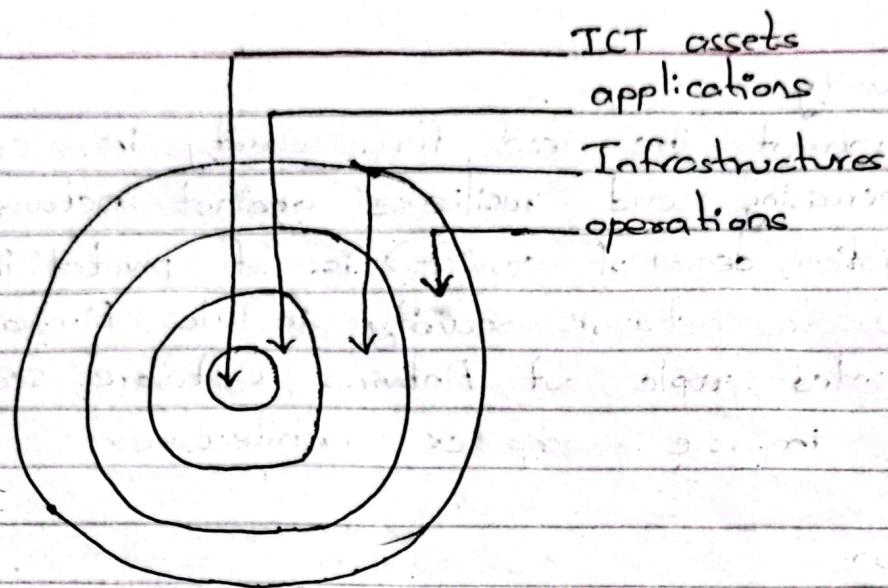 ICT assets
applications
Infrastructures
operations